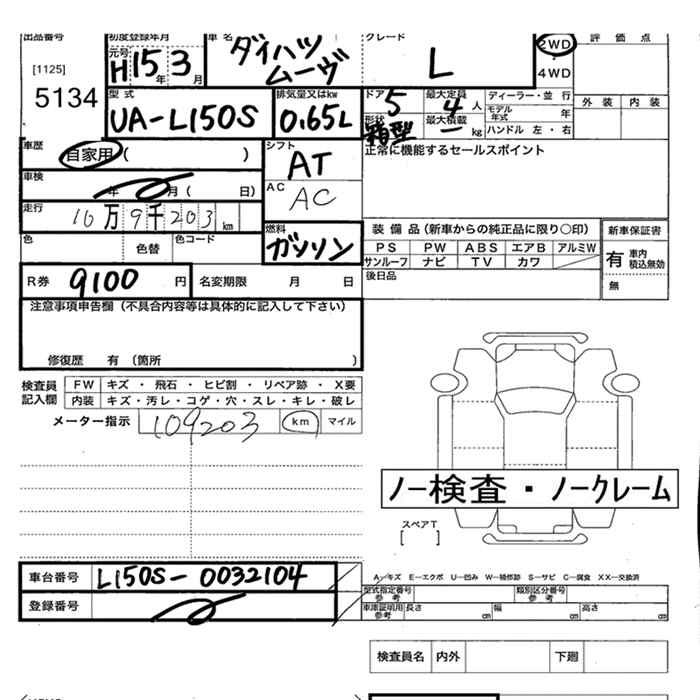 出品番号 初度登録年月 車名 グレード 2WD 評価点
[1125] 元号 H 15年 3月 ダイハツ ムーヴ L 4WD
5134
型式 排気量又はkw ドア 5 最大定員 4人 ディーラー・並行 外装 内装
UA-L150S 0.65L 形状 箱型 最大積載 ー kg モデル年式 年
ハンドル 左・右
車歴 自家用( ) シフト AT 正常に機能するセールスポイント
車検 年 月( 日) AC AC
走行 10万9千203km
色 色替 色コード 燃料 ガソリン 装備品(新車からの純正品に限り○印) 新車保証書
PS PW ABS エアB アルミW 有 車内積込無効
サンルーフ ナビ TV カワ
R券 9100円 名変期限 月 日 後日品 無
注意事項申告欄(不具合内容等は具体的に記入して下さい)
修復歴 有(箇所 )
検査員記入欄 FW キズ・飛石・ヒビ割・リペア跡・X要
内装 キズ・汚レ・コゲ・穴・スレ・キレ・破レ
メーター指示 109203 km マイル
ノー検査・ノークレーム
スペアT
[ ]
車台番号 L150S-0032104 A―キズ E―エクボ U―凹み W―補修跡 S―サビ C―腐食 XX―交換済
登録番号 型式指定番号 参考 類別区分番号 参考
車庫証明用 参考 長さ cm 幅 cm 高さ cm
検査員名 内外 下廻